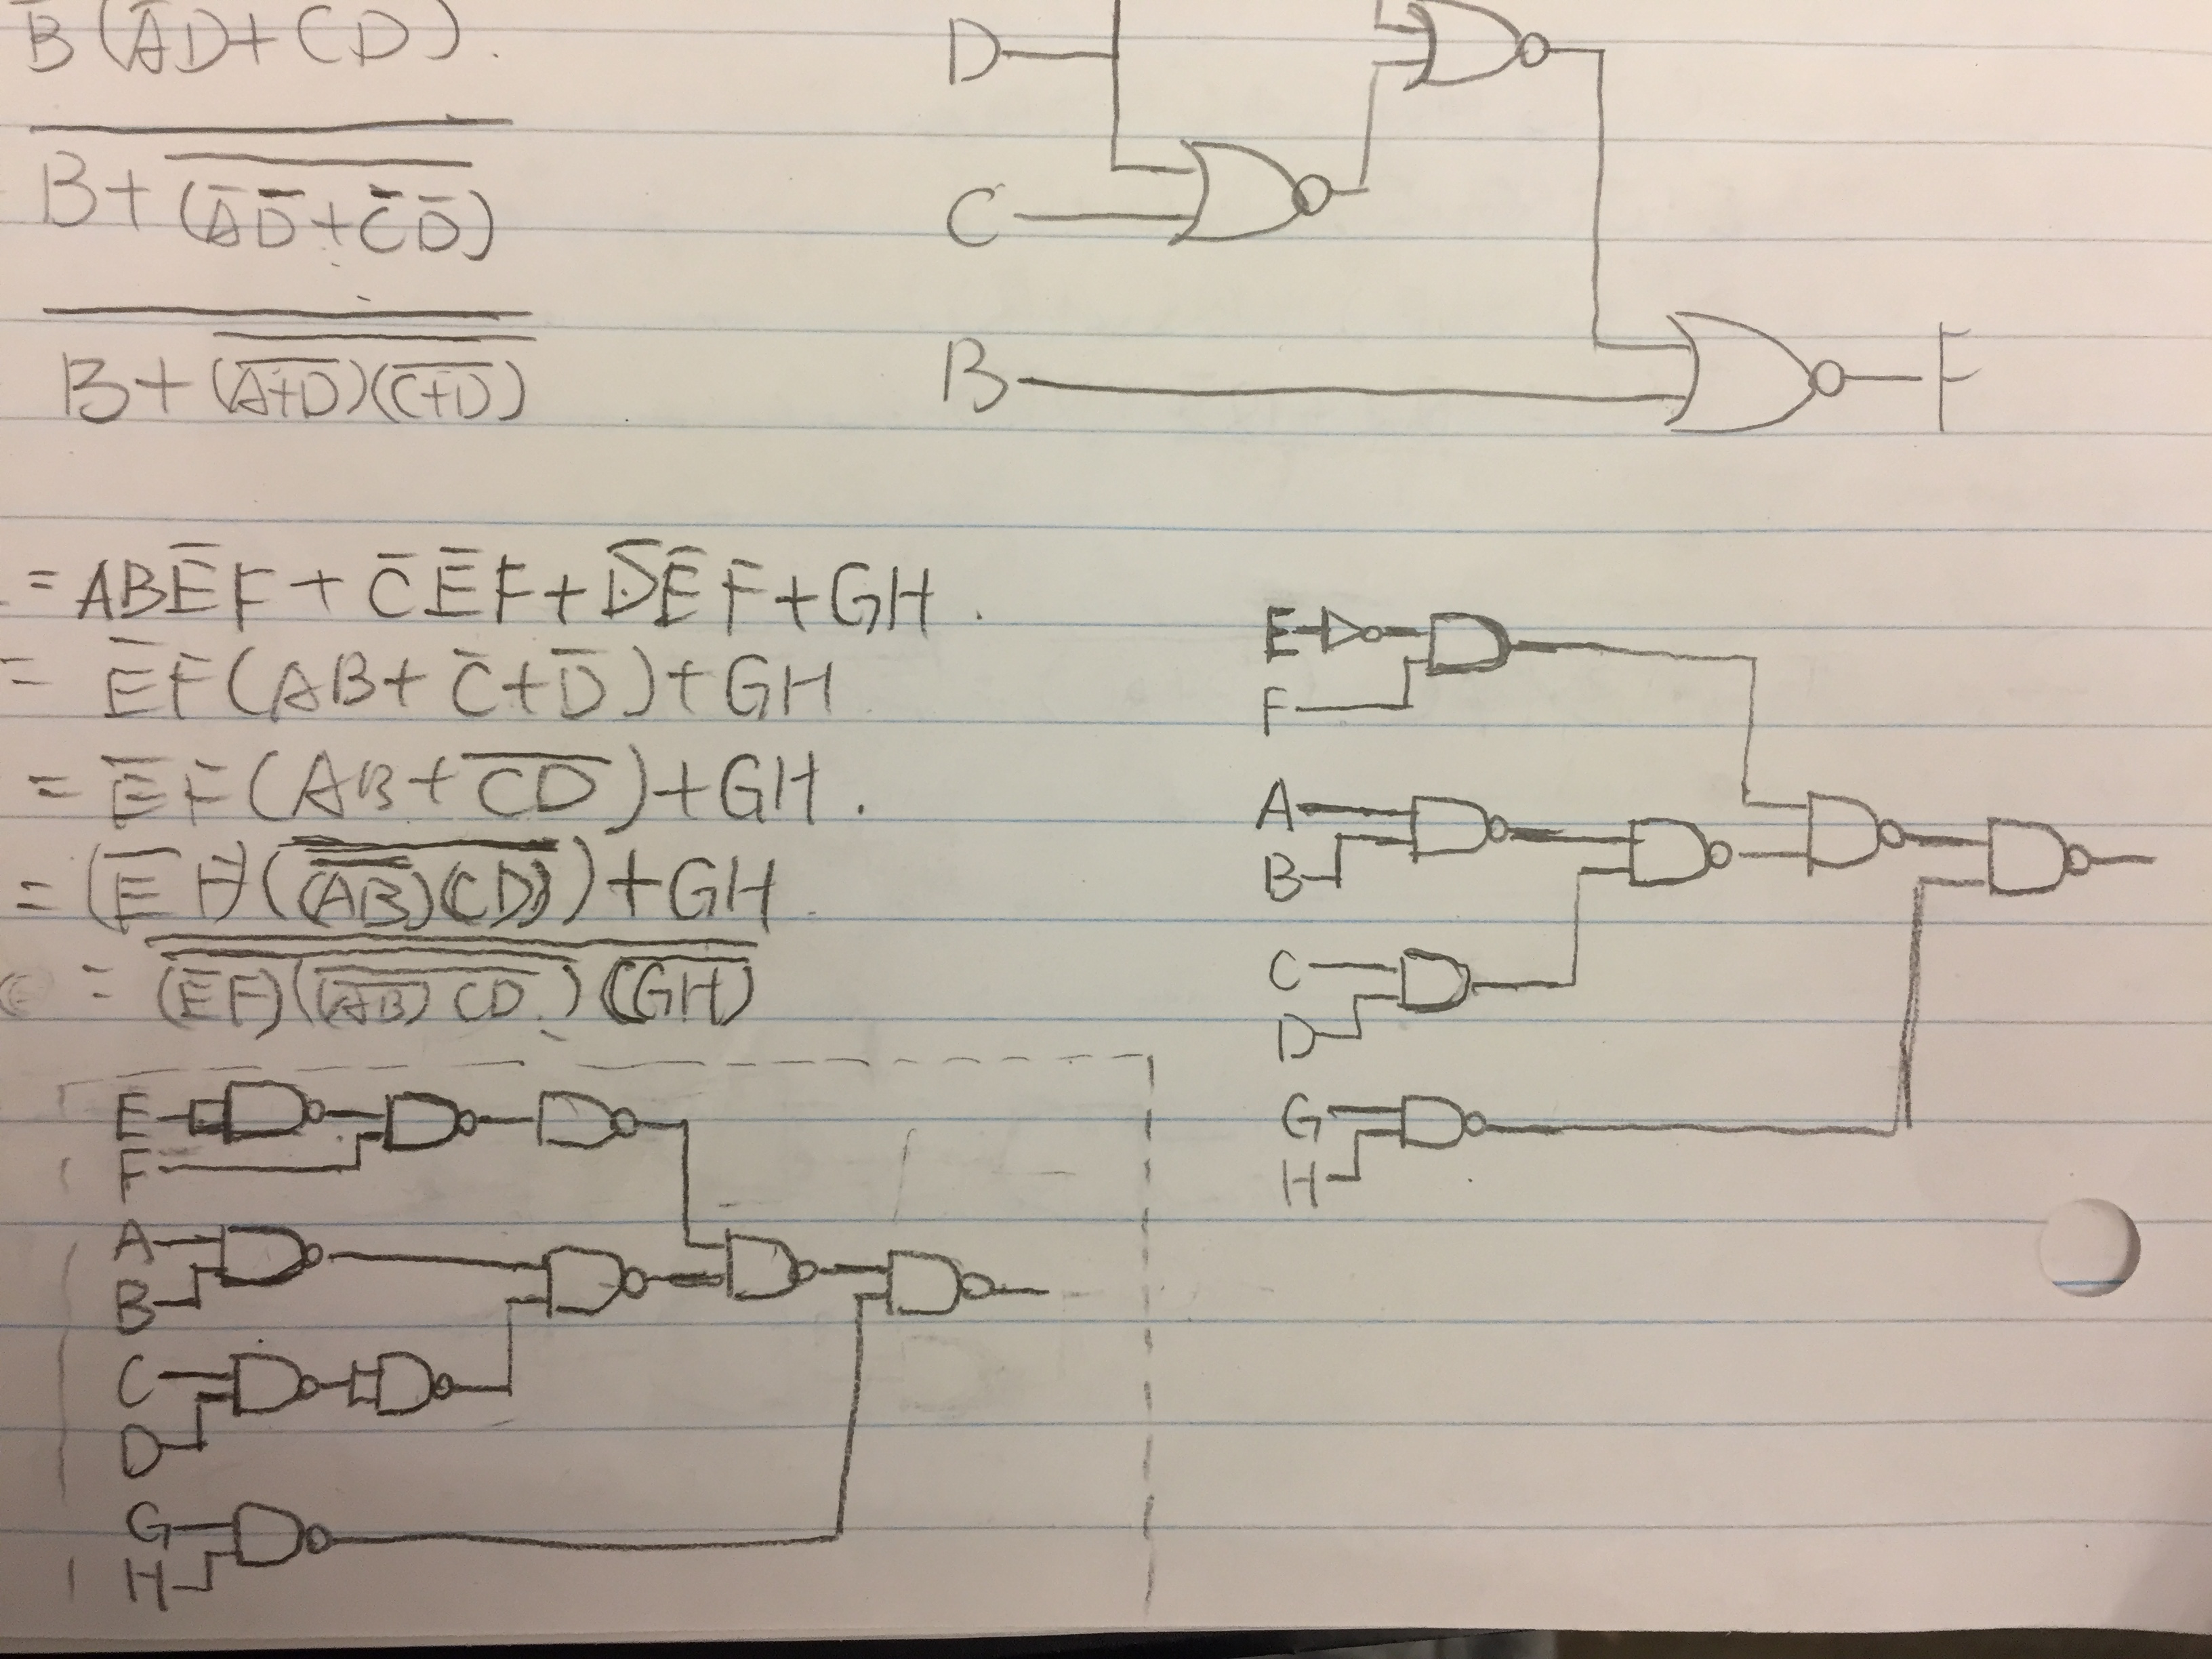 B̅(A̅D+CD)
B+(A̅D̅+C̅D̅)
B+(A+D)(C+D)
D
C
B
F
= ABE̅F + C̅E̅F + D̅E̅F + GH.
= E̅F(AB + C̅ + D̅) + GH
= E̅F(AB + C̅D̅) + GH.
= (E̅F)((A̅B̅)(CD)) + GH.
= (E̅F)((A̅B̅)CD)(G̅H̅)
E
F
A
B
C
D
G
H
E
F
A
B
C
D
G
H